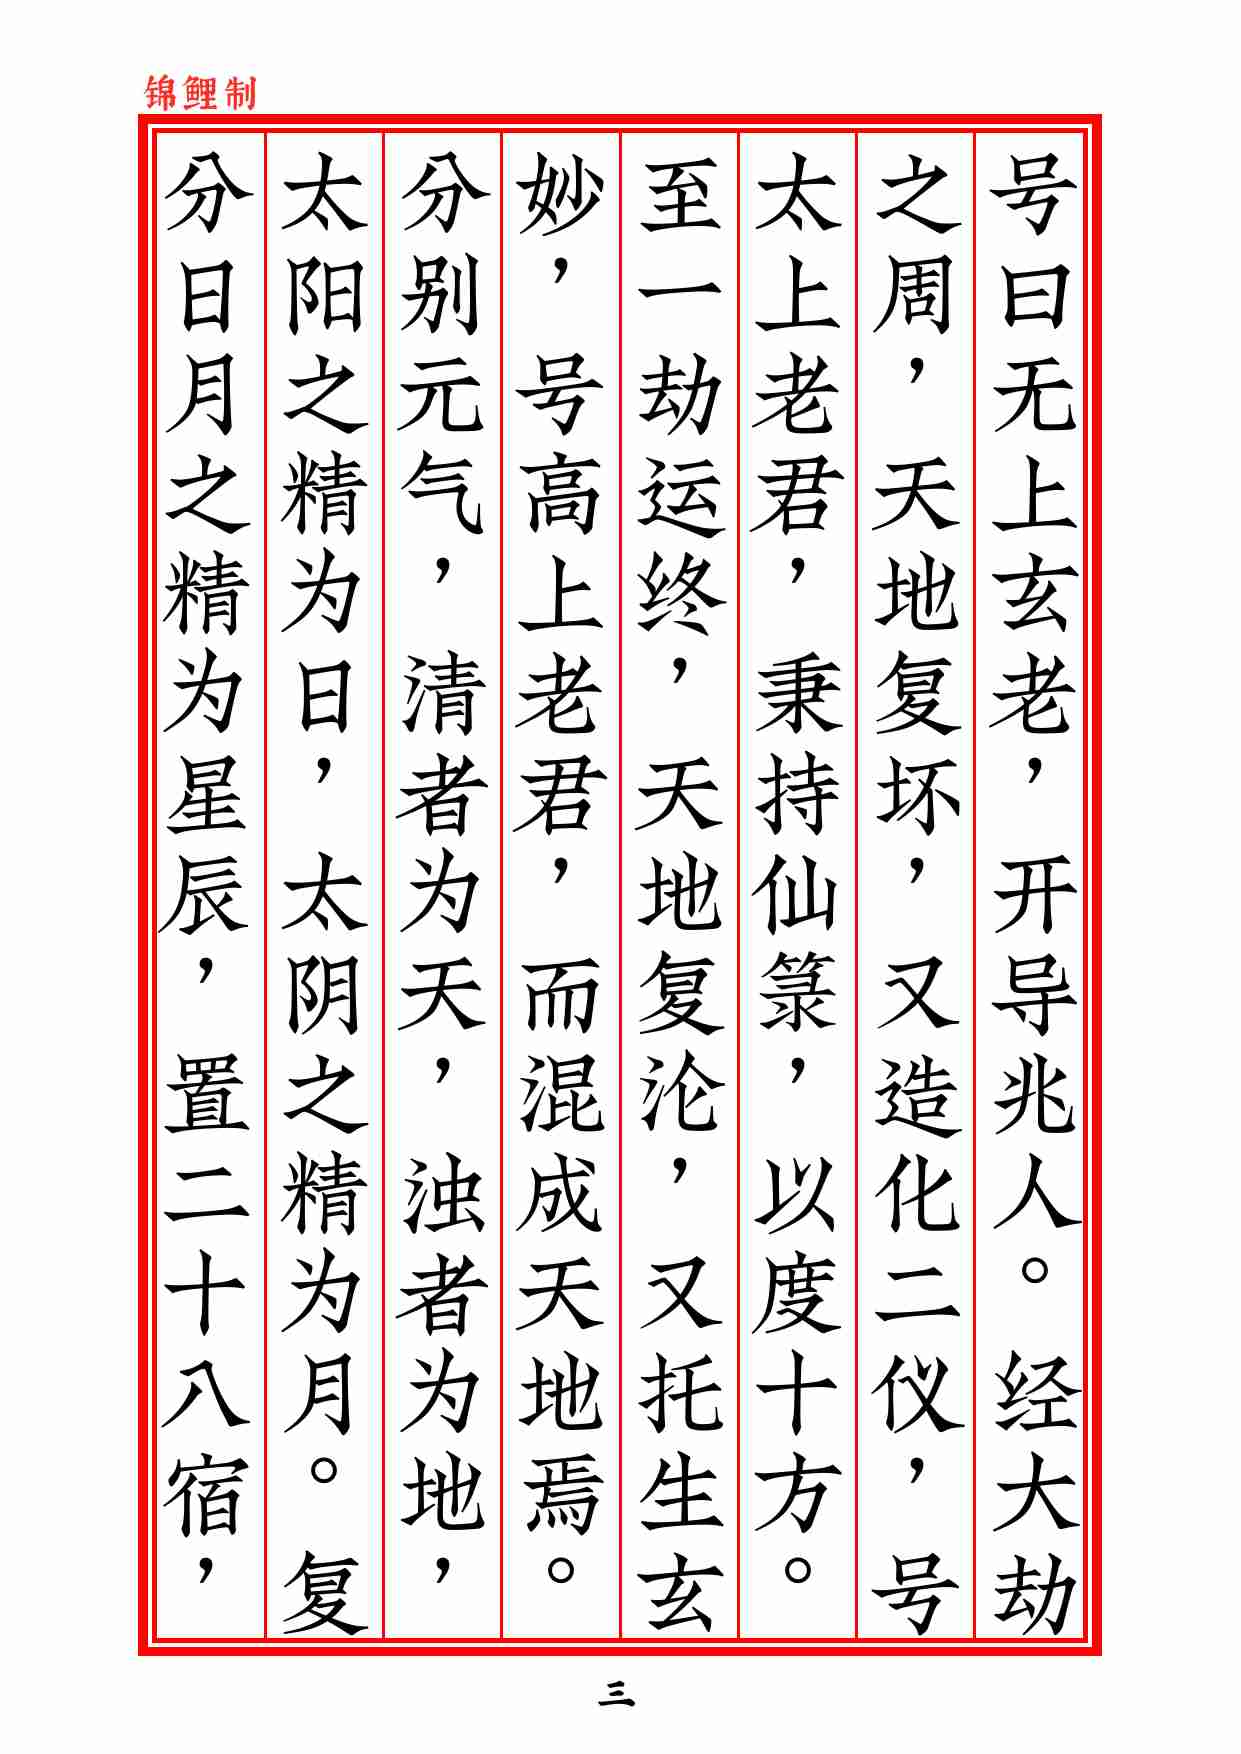 锦鲤制
号曰无上玄老，开导兆人。经大劫
之周，天地复坏，又造化二仪，号
太上老君，秉持仙箓，以度十方。
至一劫运终，天地复沦，又托生玄
妙，号高上老君，而混成天地焉。
分别元气，清者为天，浊者为地，
太阳之精为日，太阴之精为月。复
分日月之精为星辰，置二十八宿，
三